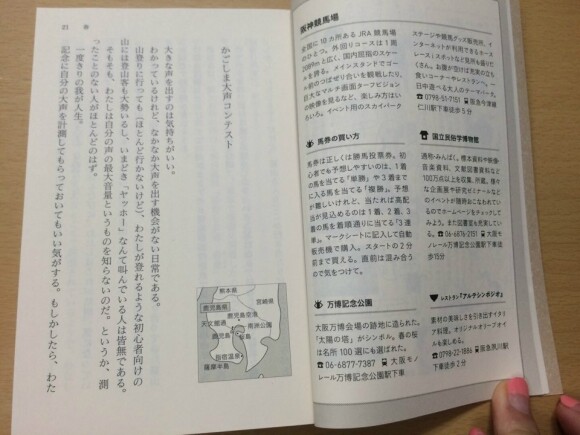 阪神競馬場
全国に10カ所あるJRA競馬場
のひとつ。外回りコースは1周
2089mと広く、国内屈指のスケー
ルを誇る。メインスタンドでゴー
ル前のつばぜり合いを観戦したり、
巨大なマルチ画面ターフビジョン
の映像を見るなど、楽しみ方はい
ろいろ。イベント用のスカイパーク
ステージや競馬グッズ販売所、イ
ンターネットが利用できるホース
スポットなど見所も盛りだ
くさん。お腹が空けば充実の立ち
食いコーナーやレストランへ。一
日中遊べる大人のテーマパーク。
☎0798-51-7151 阪急今津線
仁川駅下車徒歩5分
馬券の買い方
馬券は正しくは勝馬投票券。初
心者でも予想しやすいのは、1着
の馬を当てる「単勝」や3着まで
に入る馬を当てる「複勝」。予想
が難しいけれど、当たれば高配
当が見込めるのは1着、2着、3
着の馬を着順通りに当てる「3連
単」。マークシートに記入して自動
販売機で購入。スタートの2分
前まで買える。直前は混み合う
ので気をつけて。
国立民族学博物館
通称・みんぱく。標本資料や映像・
音楽資料、文献図書資料など
100万点以上を収集、所蔵。様々
な企画展や研究セミナーなど
のイベントが随時おこなわれている
のでホームページをチェックしてみ
よう。また図書室も充実してい
る。☎06-6876-2151 大阪モノ
レール万博記念公園駅下車徒
歩15分
万博記念公園
大阪万博会場の跡地に造られた。
「太陽の塔」がシンボル。春の桜
は名所100選にも選ばれた。
☎06-6877-7387 大阪モノ
レール万博記念公園駅下車
レストラン「アルテシンポジオ」
素材の美味しさを引き出すイタリ
ア料理。オリジナルオリーブオイ
ルを楽しめる。
☎0798-22-1886 阪急夙川駅
下車徒歩2分
かごしま大声コンテスト
大きな声を出すのは気持ちがいい。
わかっているけれど、なかなか大声を出す機会がない日常である。
山登りに行っても（ほとんど行かないけど）、わたしが登れるような初心者向けの
山には登山客も大勢いるし、いまどき「ヤッホー」なんて叫んでいる人は皆無である。
そもそも、わたしは自分の声の最大音量というものを知らないのだ。というか、測
ったことのない人がほとんどのはず。
一度きりの我が人生。
記念に自分の大声を計測してもらっておいてもいい気がする。もしかしたら、わた
熊本県
宮崎県
鹿児島県
鹿児島空港
天文館通
霧神公園
桜島
指宿温泉
薩摩半島
21 春